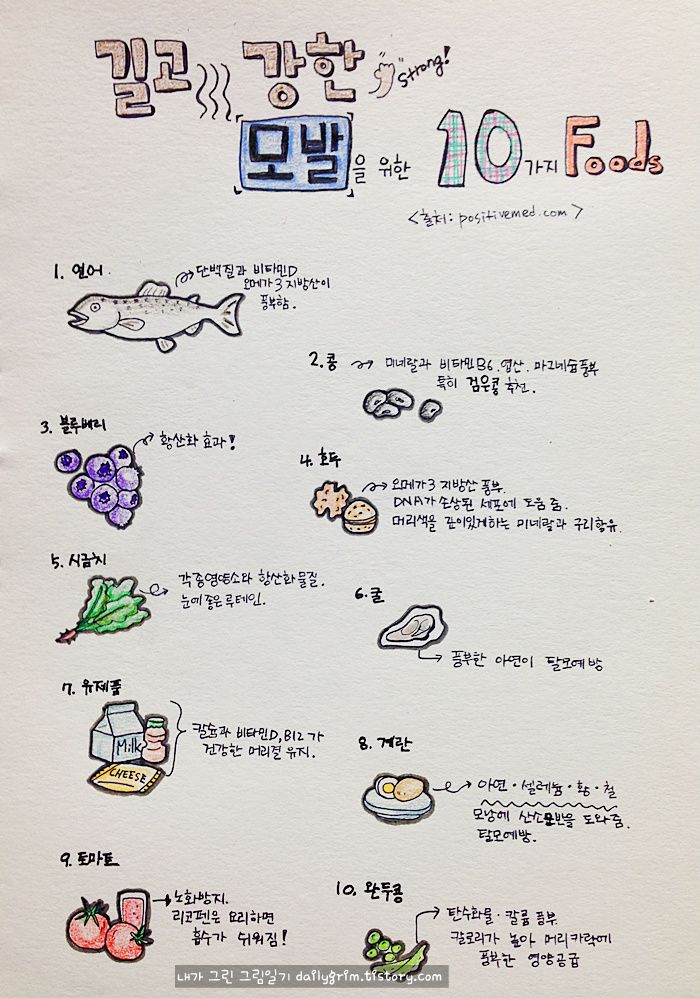 길고 강한 strong!
모발을 위한 10가지 Foods
<출처: positivemed.com>
1. 연어
단백질과 비타민D
오메가3 지방산이
풍부함.
2. 콩
미네랄과 비타민B6, 엽산, 마그네슘풍부
특히 검은콩 추천.
3. 블루베리
항산화 효과!
4. 호두
오메가3 지방산 풍부.
DNA가 손상된 세포에 도움 줌.
머리색을 깊이있게하는 미네랄과 구리함유.
5. 시금치
각종영양소와 항산화물질.
눈에좋은루테인.
6. 굴
풍부한 아연이 탈모예방
7. 유제품
Milk
CHEESE
칼슘과 비타민D, B12가
건강한 머리결 유지.
8. 계란
아연·셀레늄·황·철
모낭에 산소운반을 도와줌.
탈모예방.
9. 토마토
노화방지.
리코펜은 요리하면
흡수가 쉬워짐!
10. 완두콩
탄수화물·칼륨 풍부.
칼로리가 높아 머리카락에
풍부한 영양공급
내가 그린 그림일기 dailygrim.tistory.com